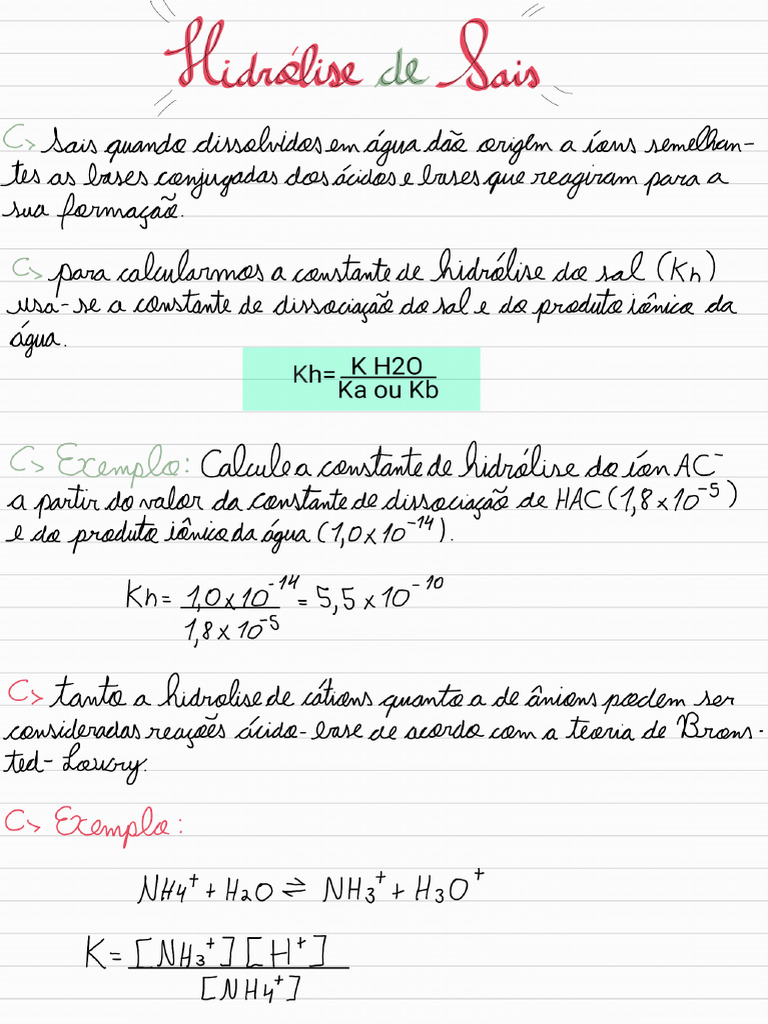 Hidrólise de Sais
Sais quando dissolvidos em água dão origem a íons semelhan-
tes as bases conjugadas dos ácidos e bases que reagiram para a
sua formação.
para calcularmos a constante de hidrólise do sal (Kh)
usa-se a constante de dissociação do sal e do produto iônico da
água.
Kh= K H2O
Ka ou Kb
Exemplo: Calcule a constante de hidrólise do íon AC⁻
a partir do valor da constante de dissociação de HAC (1,8 x 10⁻⁵)
e do produto iônico da água (1,0 x 10⁻¹⁴).
Kh = 1,0 x 10⁻¹⁴ = 5,5 x 10⁻¹⁰
1,8 x 10⁻⁵
tanto a hidrolise de cátions quanto a de ânions podem ser
consideradas reações ácido-base de acordo com a teoria de Brons-
ted-Lowry.
Exemplo:
NH4⁺ + H2O ⇌ NH3⁺ + H3O⁺
K = [NH3⁺] [H⁺]
[NH4⁺]